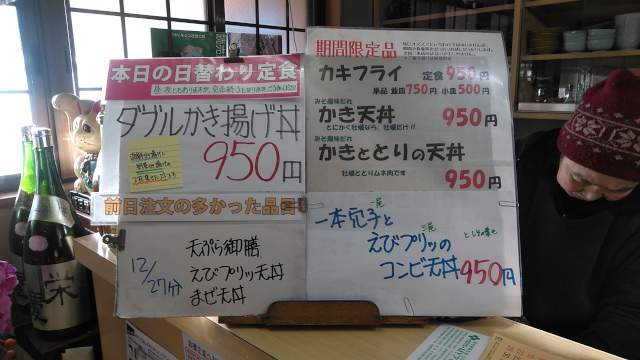 本日の日替わり定食
ダブルかき揚げ丼
950円
前日注文の多かった品書
12/27分
天ぷら御膳
えびプリッ天丼
まぜ天丼
期間限定品
カキフライ 定食950円
単品 並皿750円 小皿500円
みそ風味だれ
かき天丼 950円
とにかく牡蠣なら、牡蠣だけ!!
みそ風味だれ
かきととりの天丼
牡蠣ととりムネ肉です
950円
一本穴子と
えびプリッの
コンビ天丼950円
栄